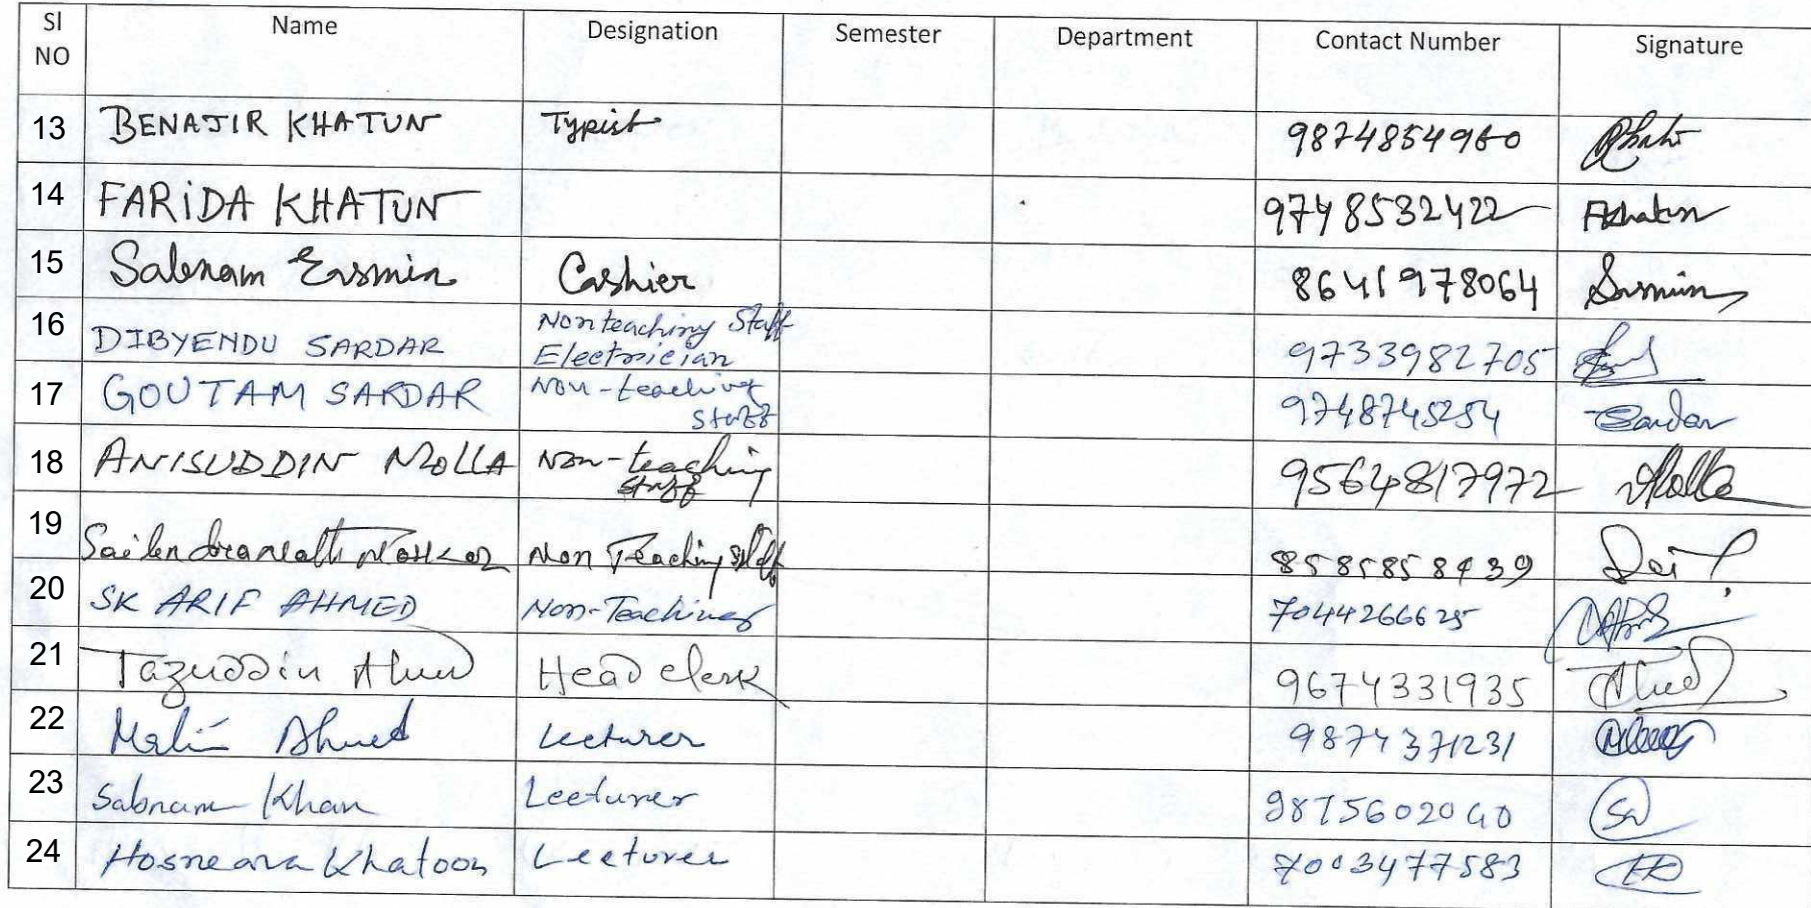 Sl NO Name Designation Semester Department Contact Number Signature
13 BENAJIR KHATUN Typist 9874854960
14 FARIDA KHATUN 9748532422 FKhatun
15 Sabnam Ersmin Cashier 8641978064
16 DIBYENDU SARDAR Nonteaching Staff Electrician 9733982705
17 GOUTAM SARDAR Non-teaching Staff 9748745254 Sardar
18 ANISUDDIN MOLLA Non-teaching staff 9564817972 AMolla
19 Non Teaching Staff
20 SK ARIF AHMED Non-Teaching 7044266625
21 Tazuddin Head clerk 9674331935
22 Ahmed Lecturer 9874371231
23 Sabnam Khan Lecturer
24 Hosneara Khatoon Lecturer 7003477583